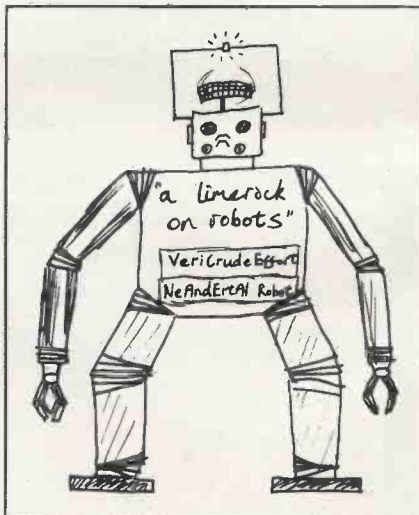 "a limerock
on robots"
VeriCrudeEffort
NeAndErtAl Robot